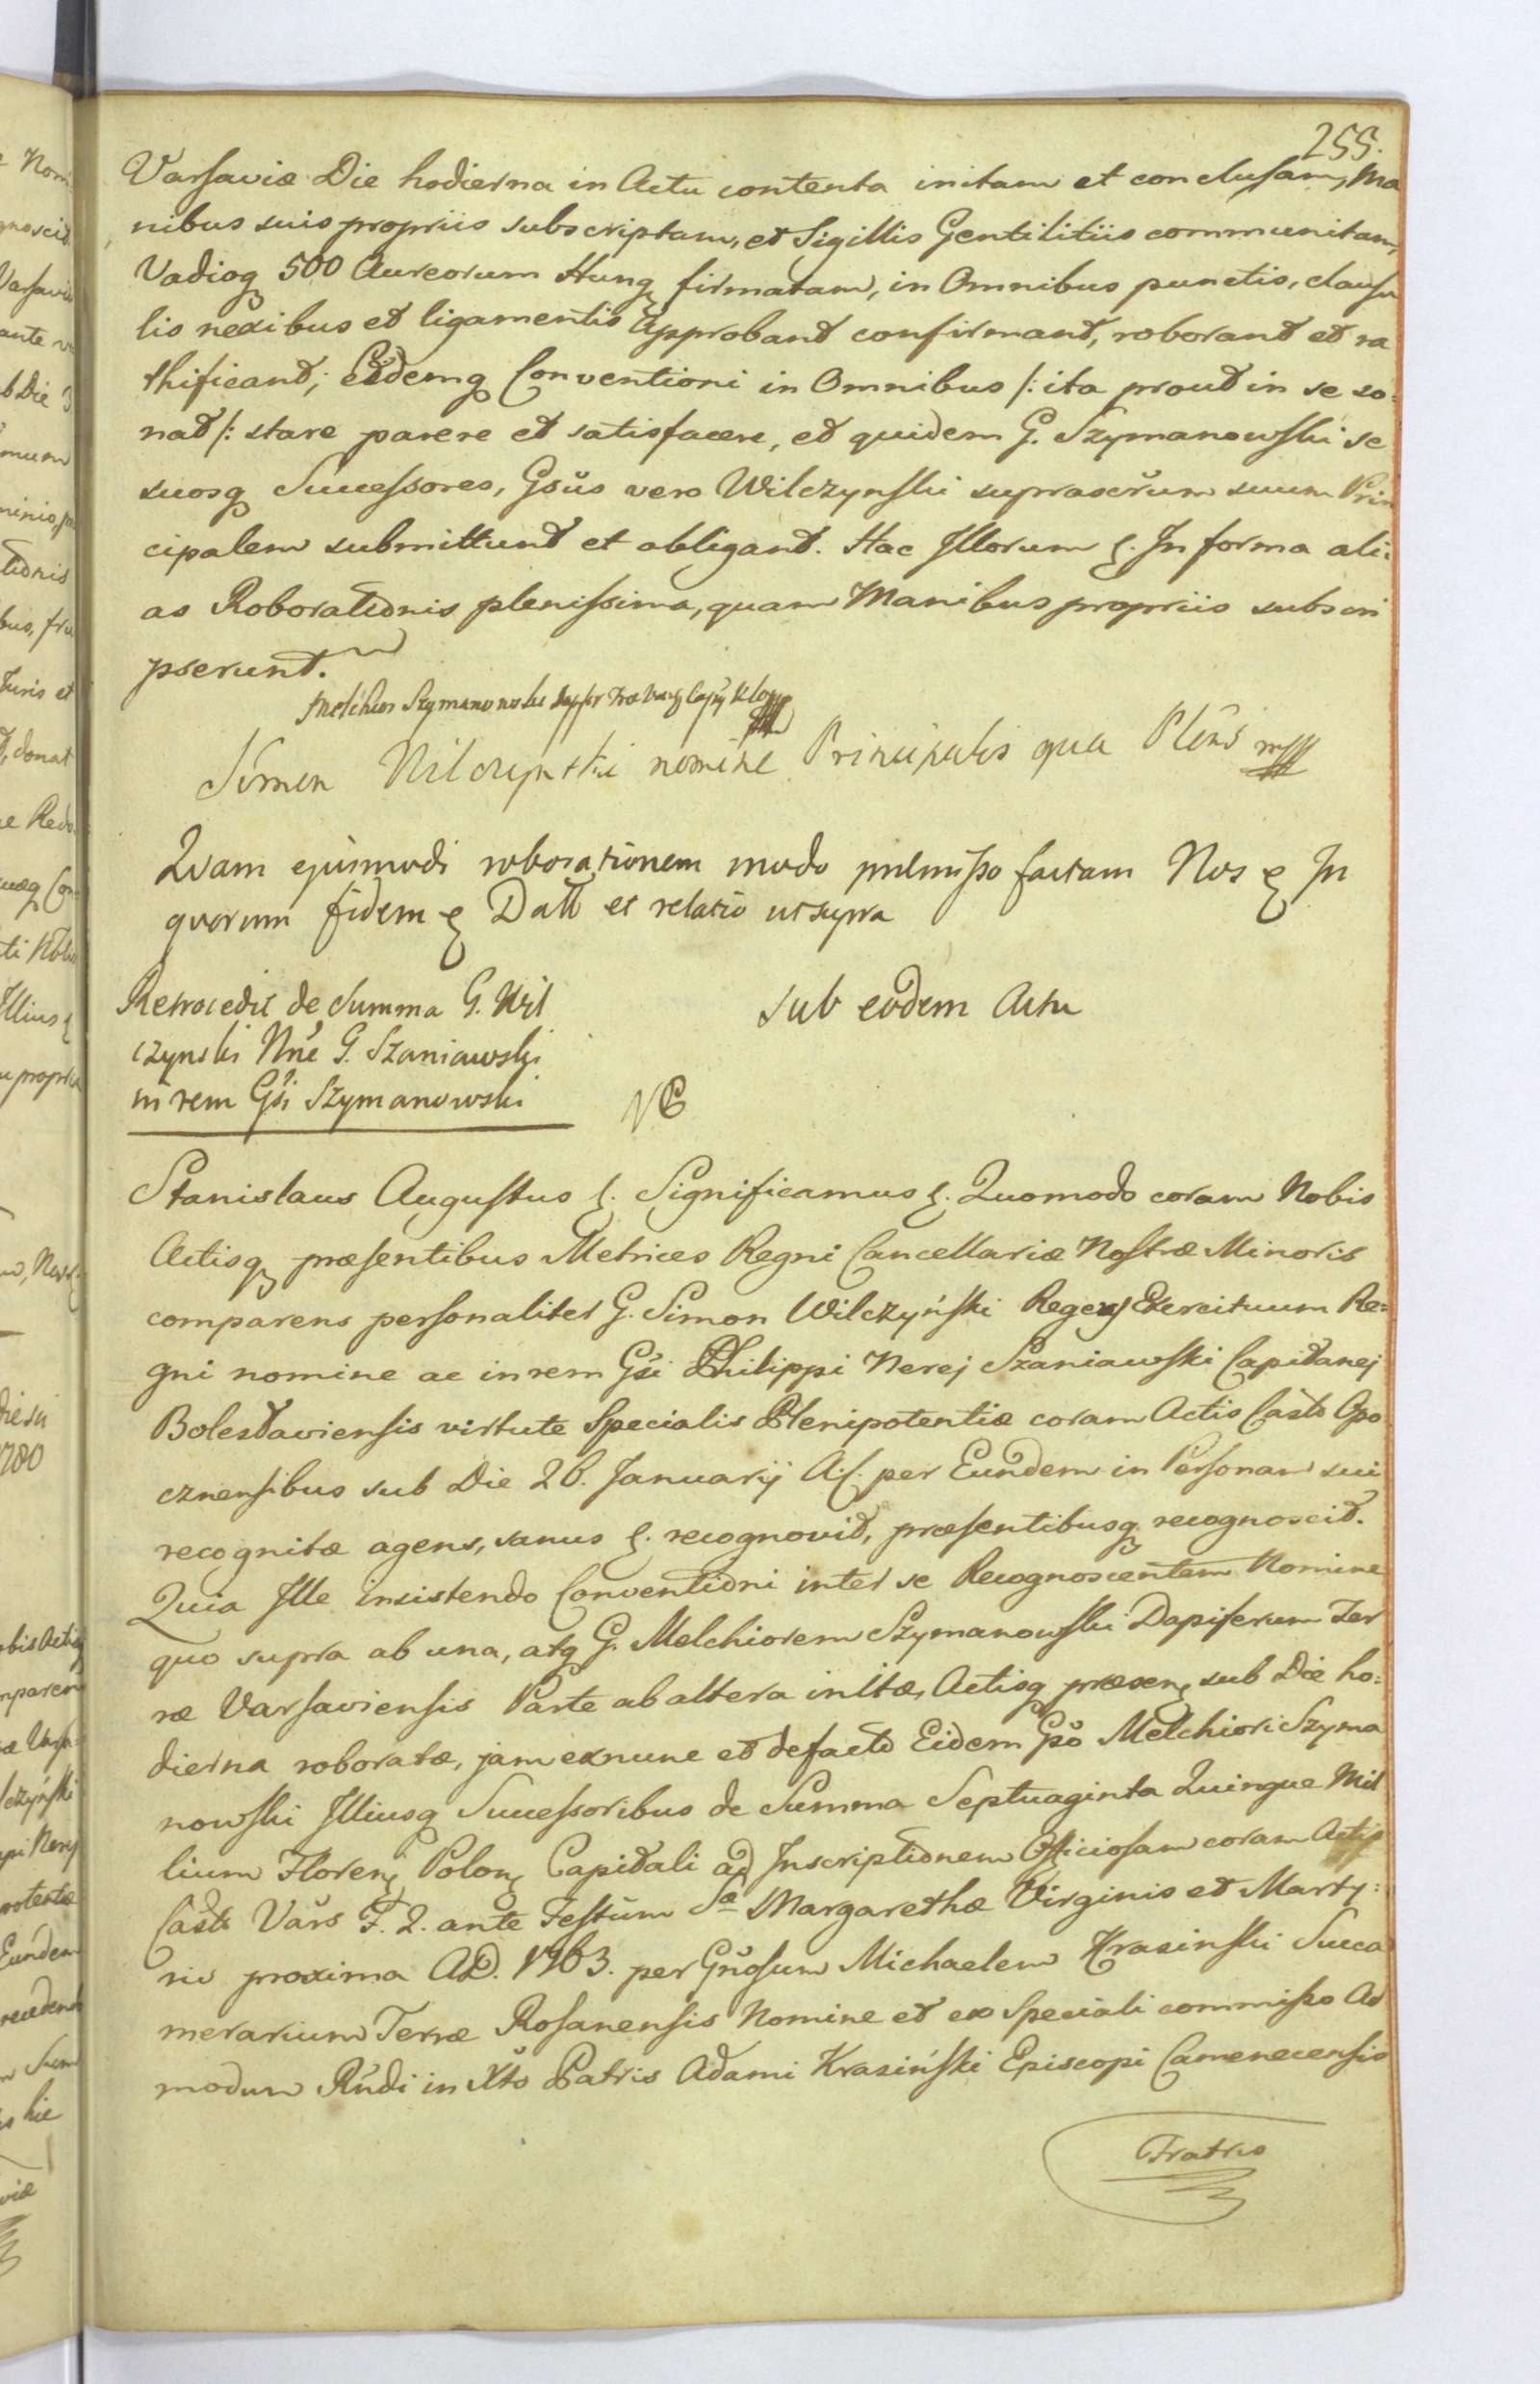 255.
Varsaviæ Die hodierna in Actu contenta initam et conclusam, Ma
nibus suis propriis subscriptam, et Sigillis Gentilitiis communitam,
Vadioq 500 Aureorum Hung firmatam, in Omnibus punctis, clausu
lis nexibus et ligamentis Approbant confirmant, roborant et ra
thificant; Eidemq Conventioni in Omnibus /: ita prout in se so:
nat /: stare parere et satisfacere, et quidem G. Szymanowski se
suosq Successores, Gsus vero Wilczynski suprascrum suum Prin
cipalem submittunt et obligant. Hac Illorum &. In forma ali:
as Roborationis plenissima, quam Manibus propriis subscri
pserunt.
Melchior Szymanowski
Simon Wilczynski nomine Principalis qua Plens mpp
Quam ejusmodi roborationem modo præmisso factam Nos & In
quorum fidem & Datt et relatio ut supra
Retrocedit de Summa G. Wil
czynski Nne G. Szaniawski
in rem Gsi Szymanowski
Sub eodem Actu
Stanislaus Augustus &. Significamus &. Quomodo coram Nobis
Actisq præsentibus Metrices Regni Cancellariæ Nostræ Minoris
comparens personaliter G. Simon Wilczyński Regens Exercituum Re=
gni nomine ac in rem Gsi Philippi Nerej Szaniawski Capitanej
Boleslaviensis virtute Specialis Plenipotentiæ coram Actis Castr Opo
cznensibus sub Die 26. Januarij A. per Eundem in Personam sui
recognitæ agens, sanus &. recognovit, præsentibusq recognoscit.
Quia Ille insistendo Conventioni inter se Recognoscentem Nomine
quo supra ab una, atq G. Melchiorem Szymanowski Dapiferum Ter
ræ Varsaviensis Parte ab altera initæ, Actisq præsen sub Die ho:
dierna roboratæ, jam exnunc et defacto Eidem Gso Melchiori Szyma
nowski Illiusq Successoribus de Summa Septuaginta Quinque Mil
lium Floren Polon Capitali ad Inscriptionem Officiosam coram Actis
Castr Vars F. 2. ante Festum Sæ Margarethæ Virginis et Marty:
ris proxima A.D. 1763. per Gnosum Michaelem Krasinski Succa
merarium Terræ Rosanensis Nomine et ex Speciali commisso Ad
modum Rndi in Xto Patris Adami Krasiński Episcopi Camenecensis
Fratris